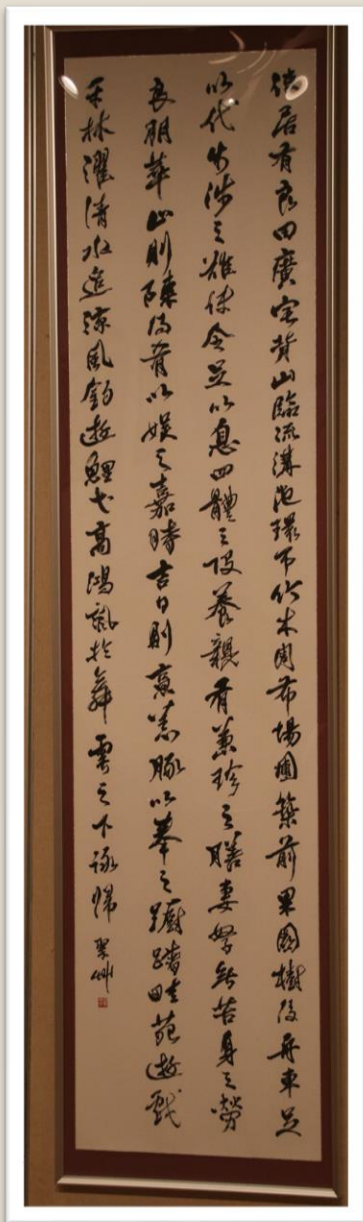 使居有良田廣宅背山臨流溝池環帀竹木周布場圃築前果園樹後舟車足
以代步涉之難使令足以息四體之役養親有兼珍之膳妻孥無苦身之勞
良朋萃止則陳酒肴以娛之嘉時吉日則烹羔豚以奉之躕躇畦苑遊戲
平林濯清水追涼風釣遊鯉弋高鴻諷於舞雩之下詠歸